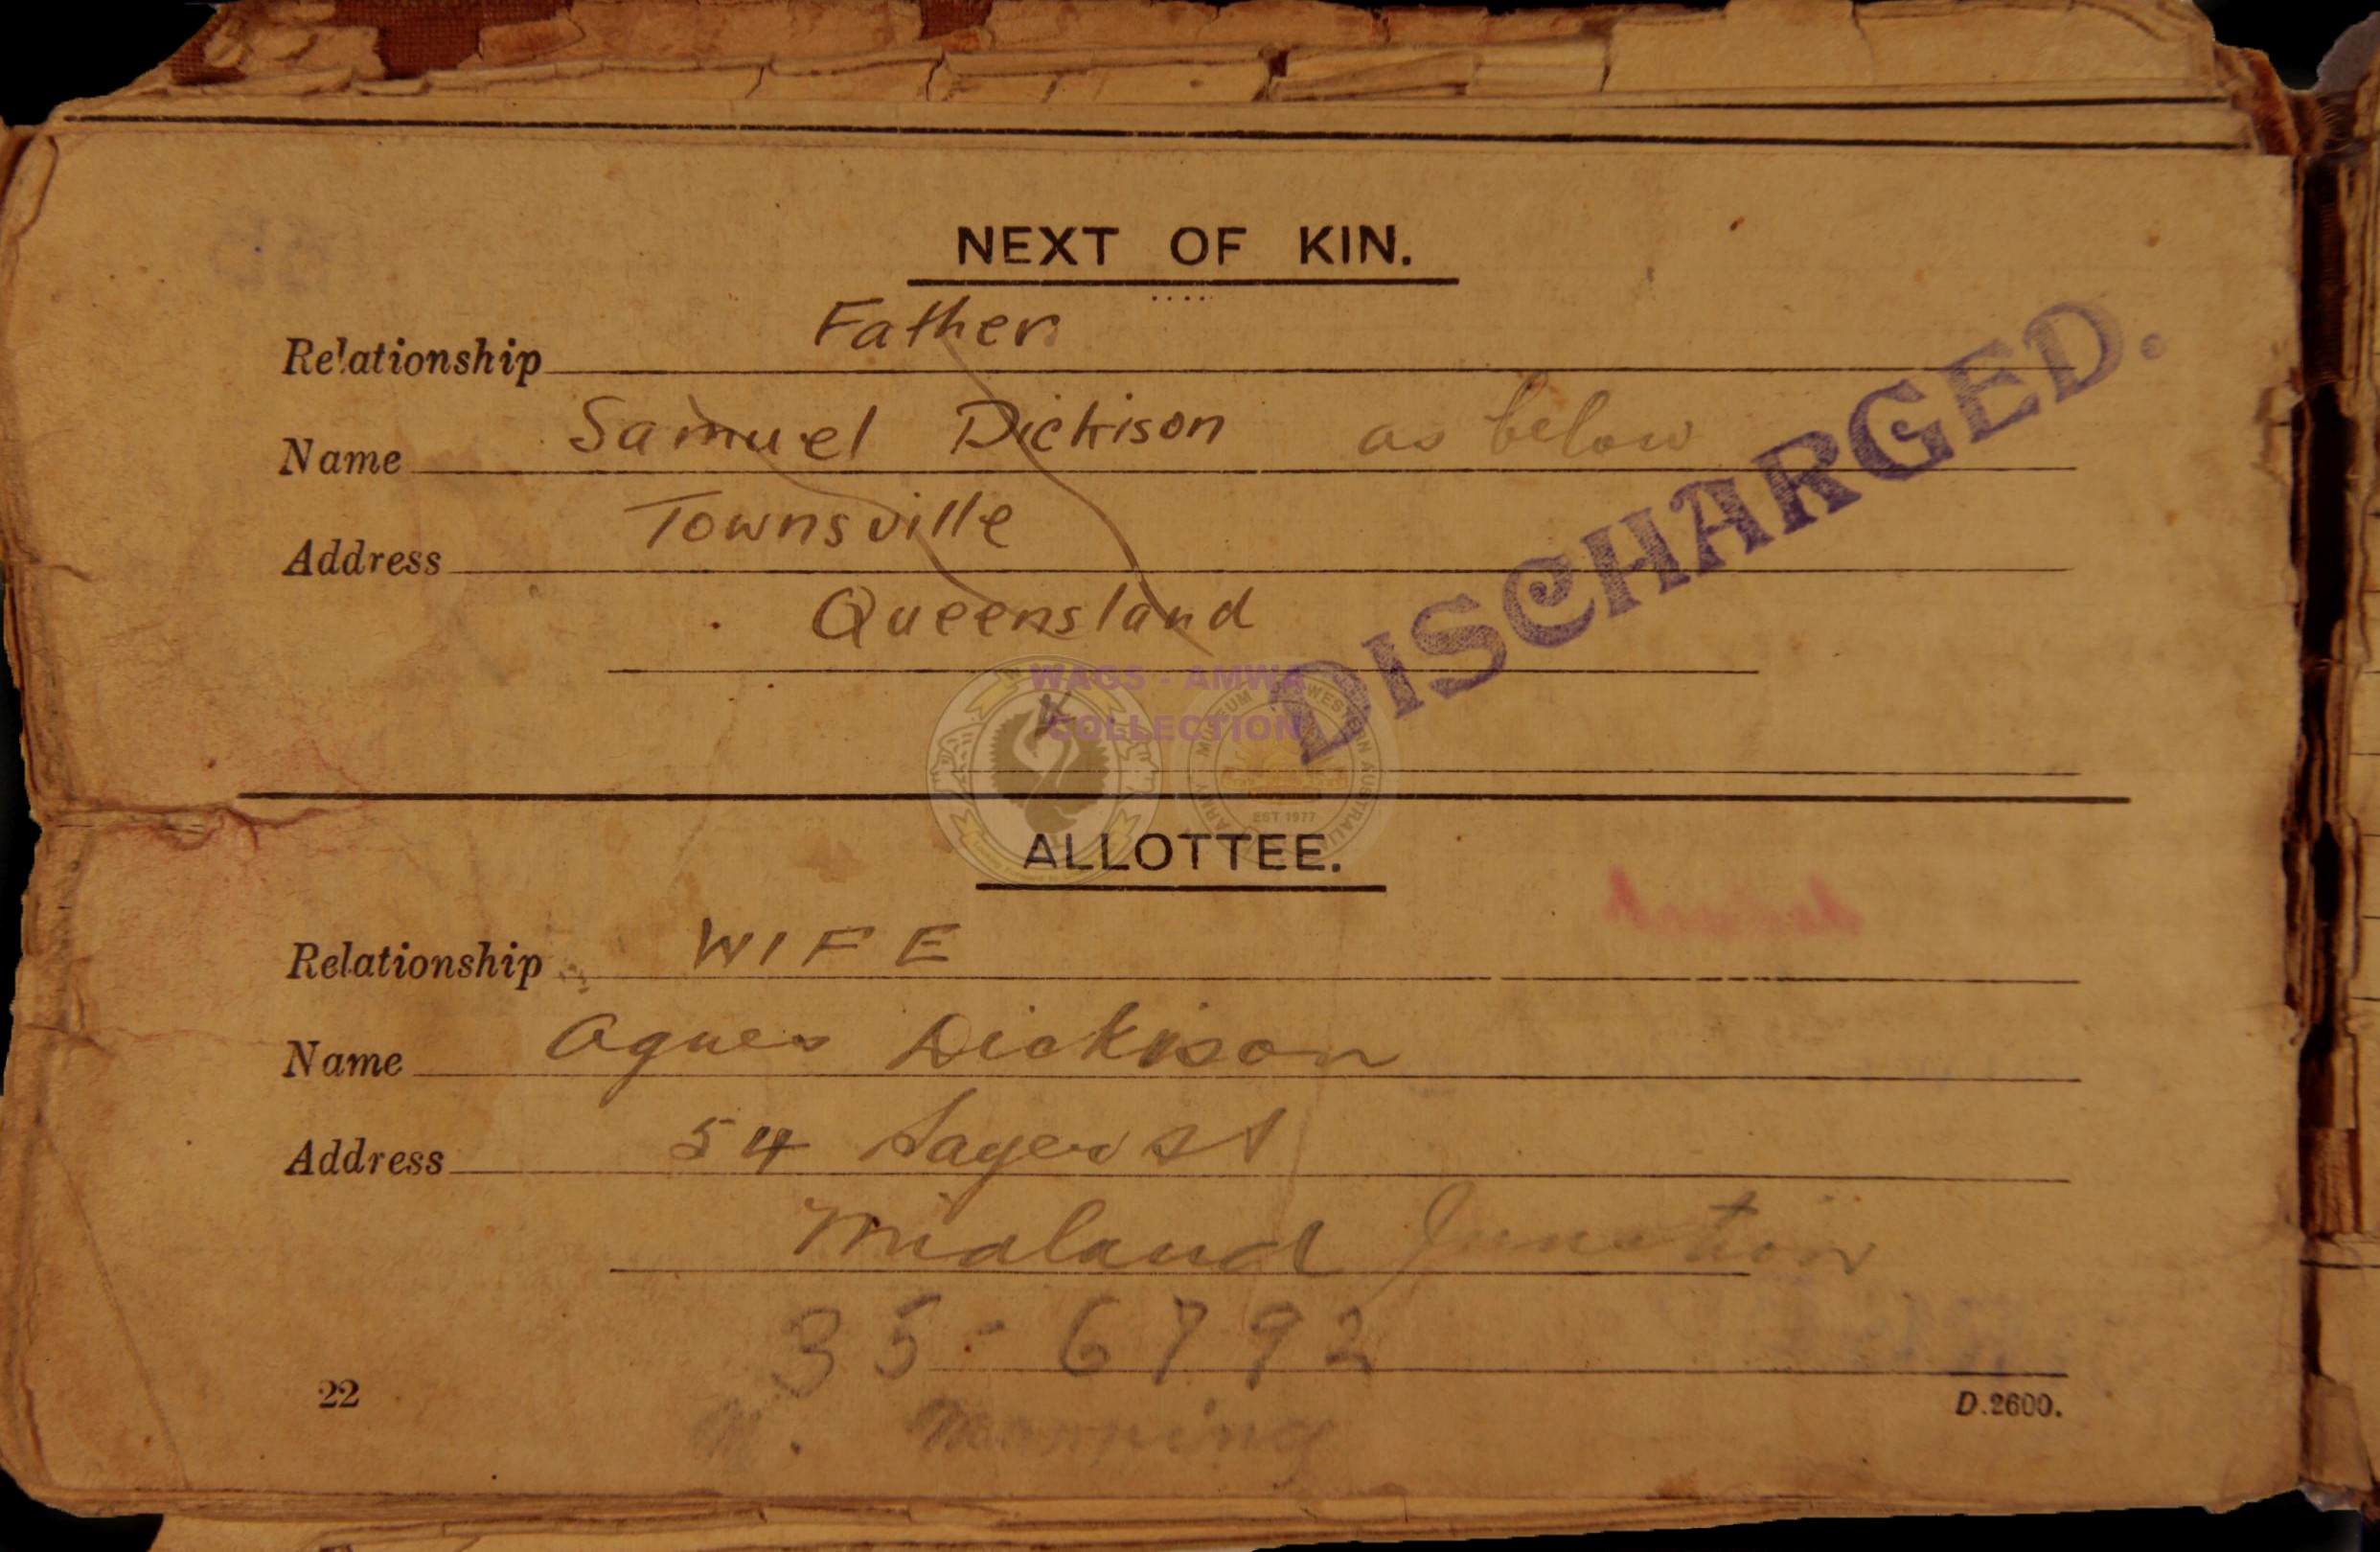 NEXT OF KIN.
Relationship Father
Name Samuel Dickison as below
Address Townsville
Queensland
DISCHARGED.
WAGS - AMWA
COLLECTION
EST 1977
ALLOTTEE.
Relationship WIFE
Name Agnes Dickison
Address 54 Sayer St
Midland Junction
35-6792
22
D.2600.